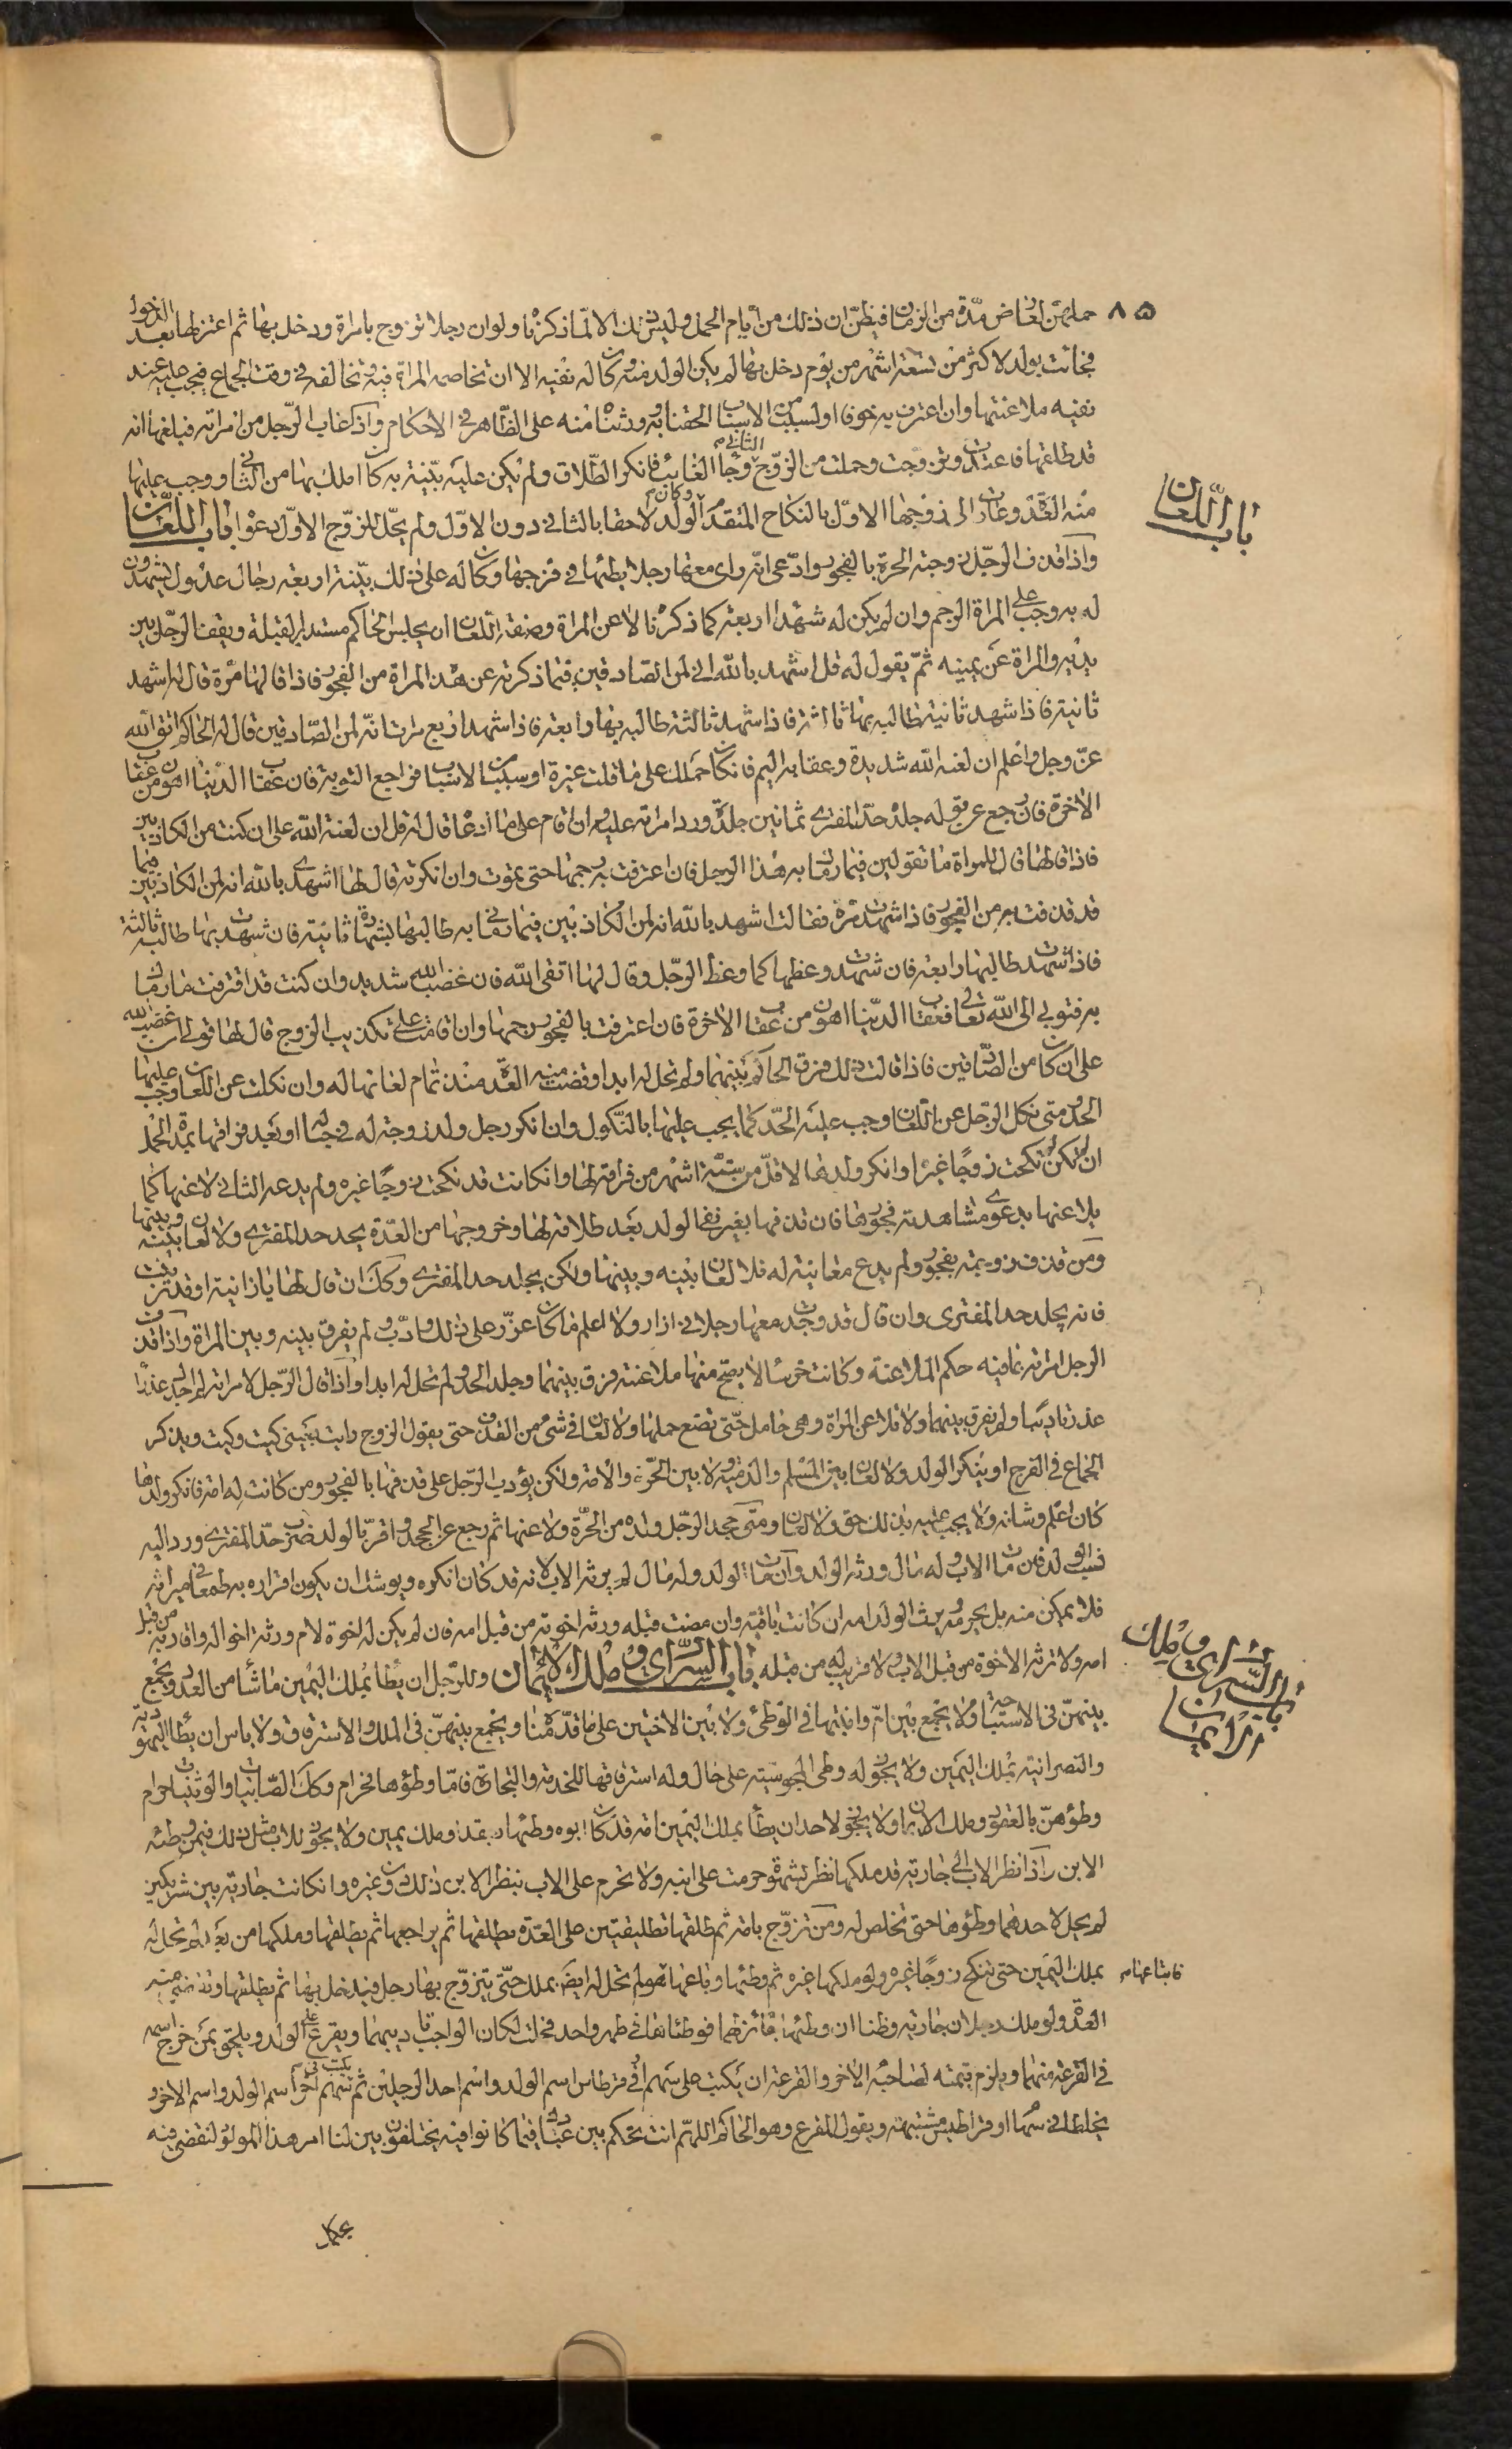 ٨٥
حملهن لعارض مدة من الزمان فيظن ان ذلك من ايام الحمل وليس ذلك الا لما ذكرناه ولو ان رجلا تزوج بامراة ودخل بها ثم اعتزلها بعد الدخول
فجائت بولد لاكثر من تسعة اشهر من يوم دخل بها لم يكن الولد منه وكان له نفيه الا ان تخاصمه المراة فيه وتخالفه في وقت الجماع فيجب عليه عند
نفيه ملاعنتها وان اعترف به خوفا او لسبب من الاسباب الحقنا به وورثناه منه على الظاهر في الاحكام واذا غاب الرجل من امراته فبلغها انه
قد طلقها فاعتدت وتزوجت وحملت من الزوج الثاني وجاء الغائب فانكر الطلاق ولم يكن عليه بينة به كان املك بها من الثاني ووجب عليها
منه العدة وعادت الى زوجها الاول بالنكاح المتقدم وكان الولد لاحقا بالثاني دون الاول ولم يحل للزوج الاول دعواه باب اللعان
واذا قذف الرجل زوجته الحرة بالفجور وادعى انه راى معها رجلا يطئها في فرجها وكان له على ذلك بينة اربعة رجال عدول يشهدون
له به وجب على المراة الرجم وان لم يكن له شهداء اربعة كما ذكرنا لاعن المراة وصفة اللعان ان يجلس الحاكم مستدبر القبلة ويقف الرجل بين
يديه والمراة عن يمينه ثم يقول له قل اشهد بالله اني لمن الصادقين فيما ذكرته عن هذه المراة من الفجور فاذا قالها مرة قال له اشهد
ثانية فاذا شهد ثانية طالبه بها ثالثة فاذا شهد ثالثة طالبه بها رابعة فاذا شهد اربع مرات انه لمن الصادقين قال له الحاكم اتق الله
عز وجل واعلم ان لعنة الله شديدة وعقابه اليم فان كان حملك على ما قلت غيرة او سبب من الاسباب فراجع التوبة فان عقاب الدنيا اهون من عقاب
الاخرة فان رجع عن قوله جلد حد المفتري ثمانين جلدة ورد امراته عليه وان اقام على ما ادعاه قال له قل ان لعنة الله علي ان كنت من الكاذبين
فاذا قالها قال للمراة ما تقولين فيما رماك به هذا الرجل فان اعترفت به رجمها حتى تموت وان انكرته قال لها اشهدي بالله انه لمن الكاذبين فيما
قد قذفت به من الفجور فاذا شهدت مرة فقالت اشهد بالله انه لمن الكاذبين فيما رماني به طالبها بشهادة ثانية فان شهدت بها طالبه ثالثة
فاذا شهدت طالبها رابعة فان شهدت وعظها كما وعظ الرجل وقال لها اتقي الله فان غضب الله شديد وان كنت قد اقترفت ما رماك
به فتوبي الى الله تعالى فعقاب الدنيا اهون من عقاب الاخرة فان اعترفت بالفجور رجمها وان اقامت على تكذيب الزوج قال لها قولي ان غضب الله
علي ان كان من الصادقين فاذا قالت ذلك فرق الحاكم بينهما ولم تحل له ابدا وقضت منه العدة منذ تمام لعانها له وان نكلت عن اللعان وجب عليها
الحد ومتى نكل الرجل عن اللعان وجب عليه الحد كما يجب عليها بالنكول وان انكر رجل ولد زوجته له في حباله او بعد فراقها بمدة الحمل
ان لم تكن نكحت زوجا غيره او انكر ولدها لاقل من ستة اشهر من فراقه لها وان كانت قد نكحت زوجا غيره ولم يدعه الثاني لاعنها كما
يلاعنها بدعوى مشاهدته فجورها فان قذفها بغير نفي الولد بعد طلاقه لها وخروجها من العدة يجلد حد المفتري ولا لعان بينه وبينها
ومن قذف زوجته بفجور ولم يدع معاينته له فلا لعان بينه وبينها ولكن يجلد حد المفتري وكك ان قال لها يا زانية او قد زنيت
فانه يجلد حد المفترى وان قال قد وجدت معها رجلا في ازار ولا اعلم ما كان عزر على ذلك وادب ولم يفرق بينه وبين المراة واذا قذف
الرجل امراته بما فيه حكم الملاعنة وكانت خرساء لا يصح منها ملاعنته فرق بينهما وجلد الحد ولم تحل له ابدا واذا قال الرجل لامراته لم اجدك عذراء
عزر تاديبا ولم يفرق بينهما ولا يلاعن المراة وهي حامل حتى تضع حملها ولا لعان في شئ من القذف حتى يقول الزوج رايت بعيني كيت وكيت ويذكر
الجماع في الفرج او ينكر الولد ولا لعان بين المسلم والذمية ولا بين الحر والامة ولكن يؤدب الرجل على قذفها بالفجور ومن كانت له امة فانكر ولدها
كان اعلم وشانه ولا يجب عليه بذلك حق ولا لعان ومتى جحد الرجل ولده من الحرة ولاعنها ثم رجع عن الجحد واقر بالولد ضرب حد المفتري ورد اليه
نسب الولد فان مات الاب وله مال ورثه الولد وان مات الولد وله مال لم يرثه الاب لانه قد كان انكره ويوشك ان يكون اقراره به طمعا في ميراثه
فلا يمكن منه بل يحرمه ويرث الولد امه ان كانت باقية وان مضت قبله ورثه اخوته من قبل امه فان لم يكن له اخوة لام ورثه اخواله واقاربه من قبل
امه ولا ترثه الاخوة من قبل الاب ولا قريب له من قبله باب السراري وملك الايمان وللرجل ان يطا بملك اليمين ما شاء من العدد ويجمع
بينهن في الاستباحة ولا يجمع بين ام وابنتها في الوطئ ولا بين الاختين على ما قدمناه ويجمع بينهن في الملك والاسترقاق ولا باس ان يطا اليهودية
والنصرانية بملك اليمين ولا يجوز له وطى المجوسية على حال وله استرقاقها للخدمة والتجارة فاما وطؤها فحرام وكك الصابئيات والوثنيات حرام
وطؤهن بالعقود وملك الايمان ولا يجوز لاحد ان يطأ بملك اليمين امة قد كان ابوه وطئها بعقد او ملك يمين ولا يجوز للاب مثل ذلك فيمن وطئه
الابن واذا نظر الاب الى جارية قد ملكها نظر بشهوة حرمت على ابنه ولا تحرم على الاب بنظر الابن ذلك وغيره وان كانت جارية بين شريكين
لم يحل لاحدهما وطؤها حتى تخلص له ومن تزوج بامة ثم طلقها تطليقتين على العدة يطلقها ثم يراجعها ثم يطلقها وملكها من بعد لم تحل له
بملك اليمين حتى تنكح زوجا غيره ولو ملكها غيره ثم وطئها وباعها هو لم تحل له ايضا بملك حتى يتزوج بها رجل فيدخل بها ثم يطلقها وتقضي منه
العدة ولو ملك رجلان جارية وظنا ان وطئها جائز لهما فوطئاها في طهر واحد فحملت لكان الواجب تاديبهما ويقرع على الولد ويلحق بمن خرج اسمه
في القرعة منهما ويلزم بقيمته لصاحبه الاخر والقرعة ان يكتب على سهم او في قرطاس اسم الولد واسم احد الرجلين ثم يكتب في سهم اخر اسم الولد واسم الاخر و
يخلطا في سهام او قراطيس مشتبهة ويقول المقرع وهو الحاكم اللهم انت تحكم بين عبادك فيما كانوا فيه يختلفون بين لنا امر هذا المولود لنقضي فيه
باب اللعان
باب السراري وملك
الايمان
فابتاعها م
بحكمك